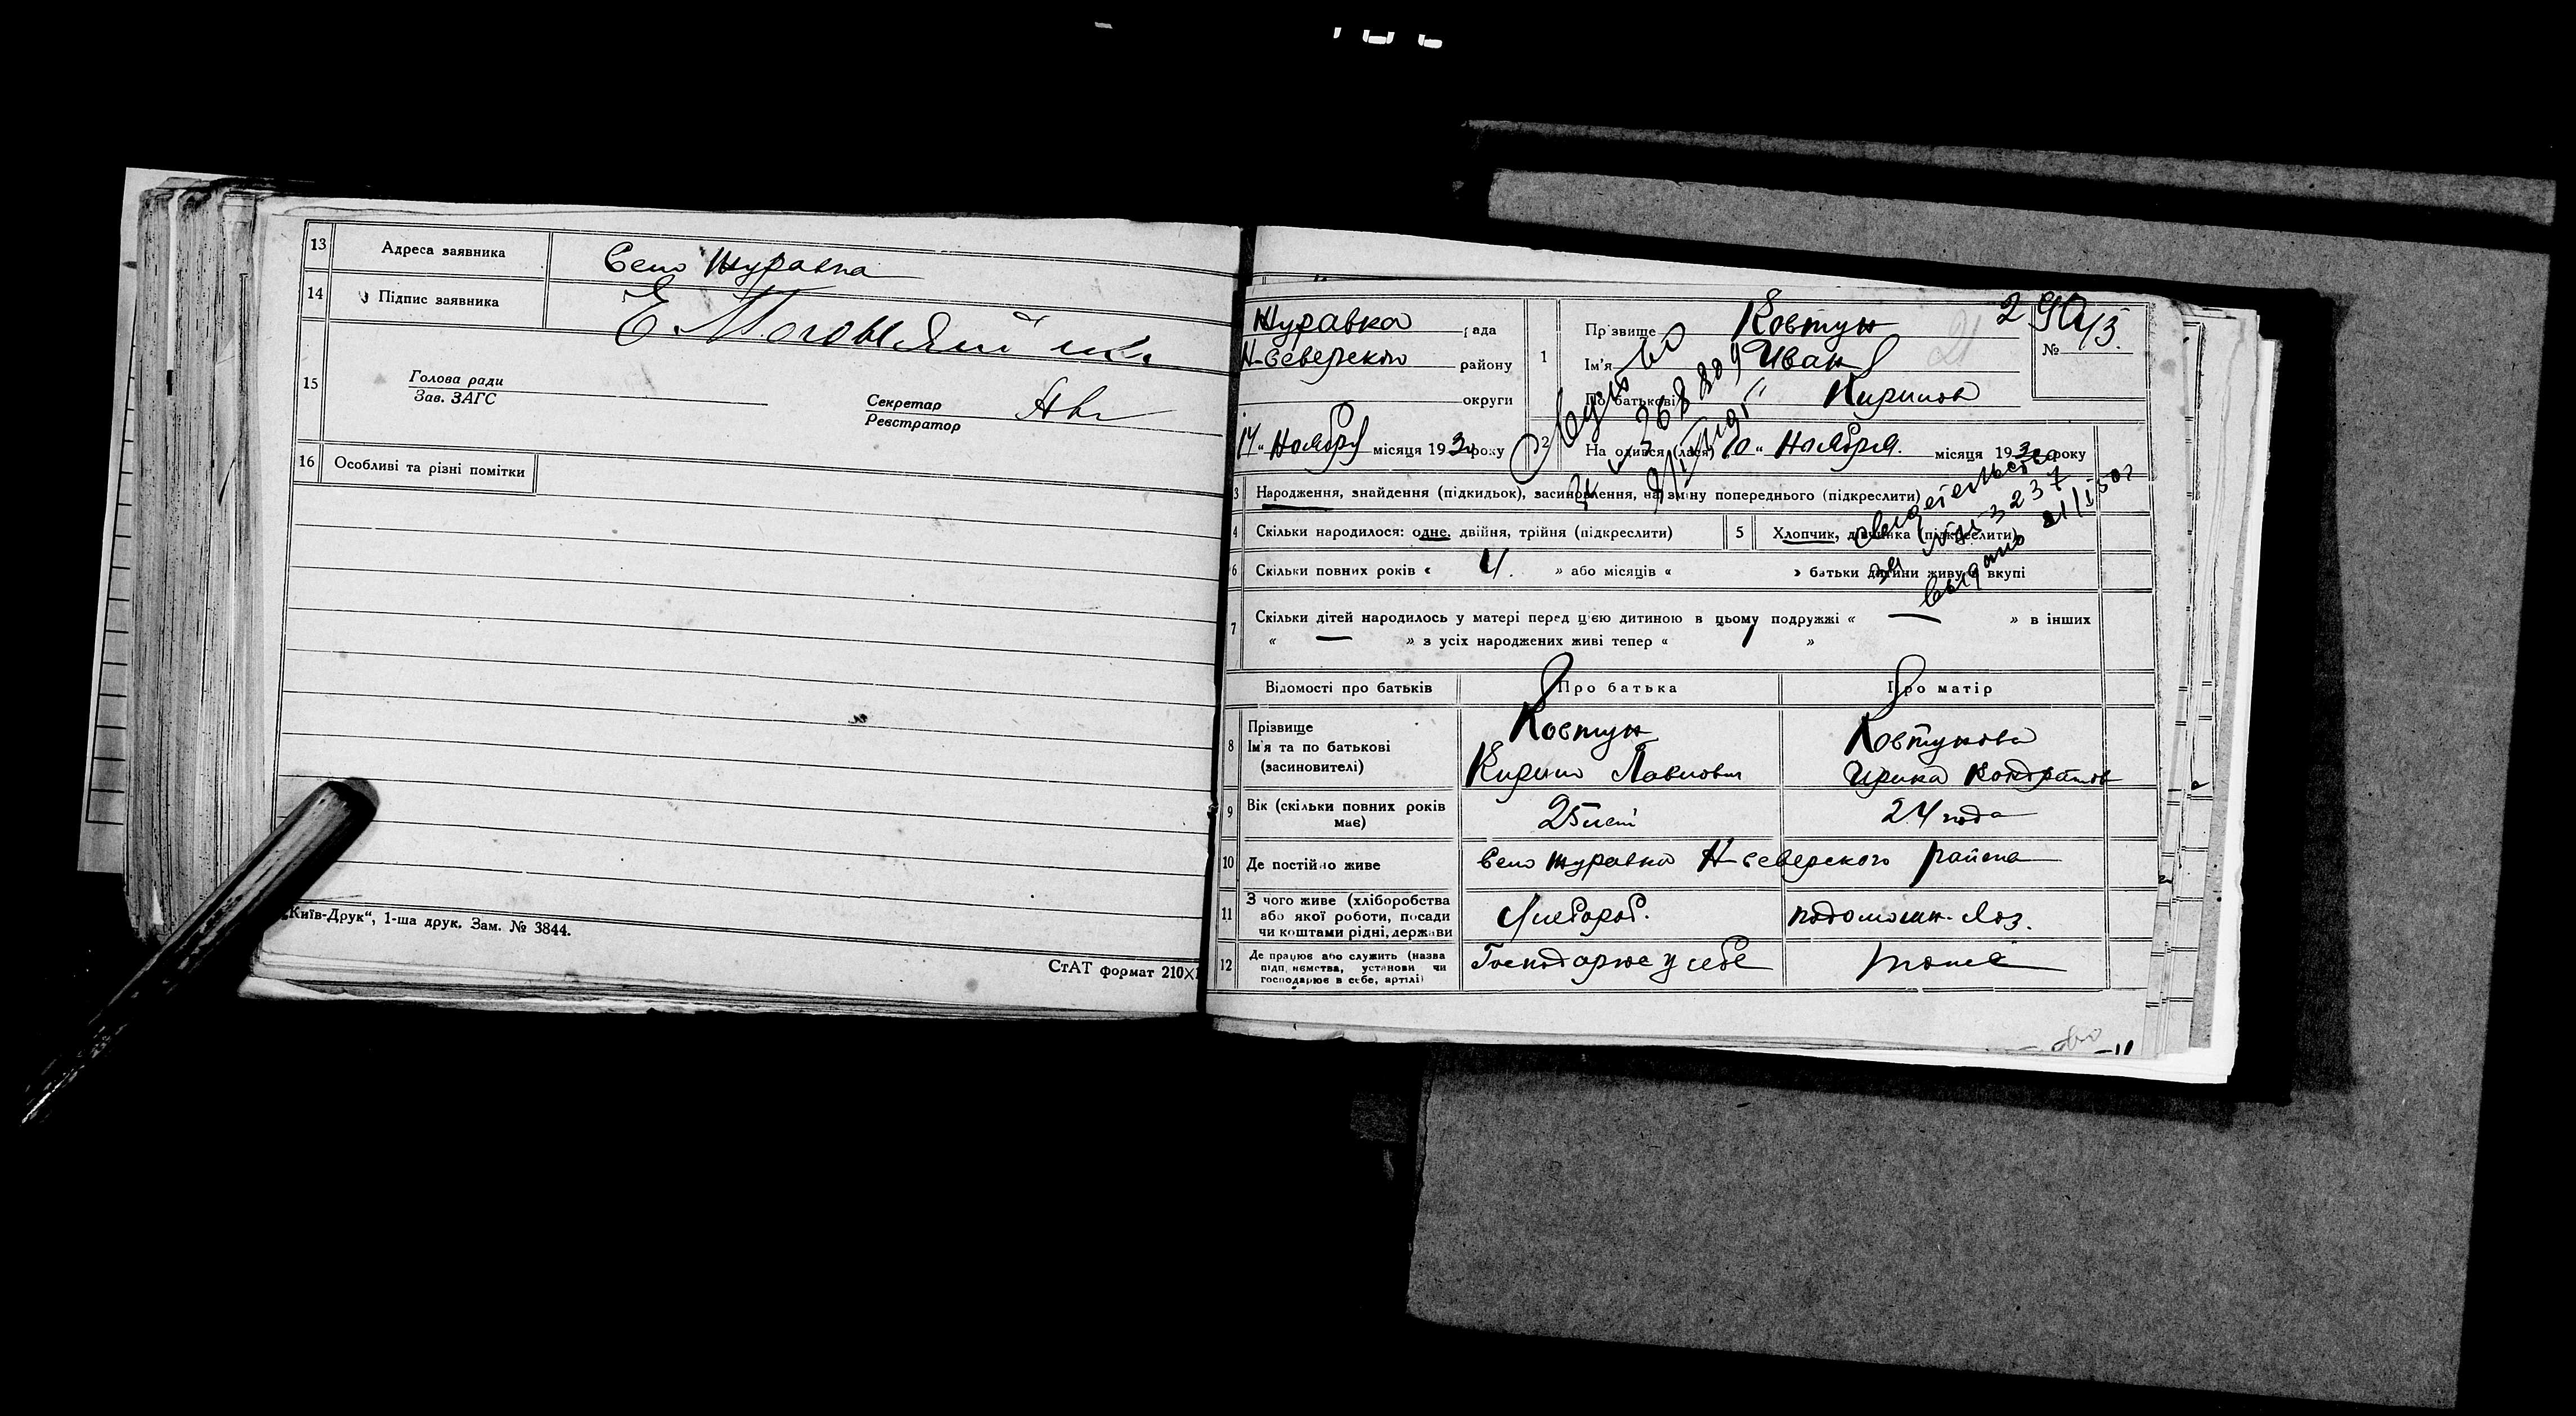 13 Адреса заявника Село Журавка
14 Підпис заявника Е.
15 Голова ради
Зав. ЗАГС
Секретар
Реєстратор
16 Особливі та різні помітки
„Київ-Друк“, 1-ша друк. Зам. № 3844.
СтАТ формат 210X
Журавка рада
Н-Северского району
округи
14 " Ноября місяця 193 року
1 Прізвище Ковтун
Ім'я Иван
По батькові Кирилов
№
2 На одився (лася) 10 " Ноября. місяця 193 року
свидетельство
3237
выдано
3 Народження, знайдення (підкидьок), засиновлення, на зміну попереднього (підкреслити)
4 Скільки народилося: одне, двійня, трійня (підкреслити)
5 Хлопчик, дівчинка (підкреслити)
6 Скільки повних років « 4. » або місяців « » батьки дитини живуть вкупі
7 Скільки дітей народилось у матері перед цією дитиною в цьому подружжі « — » в інших
« — » з усіх народжених живі тепер « »
Відомості про батьків Про батька Про матір
8 Прізвище
Ім'я та по батькові
(засиновителі)
Ковтун
Кирил Павлович
Ковтунова
Ирина Кондратов
9 Вік (скільки повних років
має)
25 лет
24 года
10 Де постійно живе Село Журавка Н-Северского района
11 З чого живе (хліборобства
або якої роботи, посади
чи коштами рідні, держави
Хлебороб.
12 Де працює або служить (назва
підприємства, установи чи
господарює в себе, артілі)
Господарює у себе
тоже